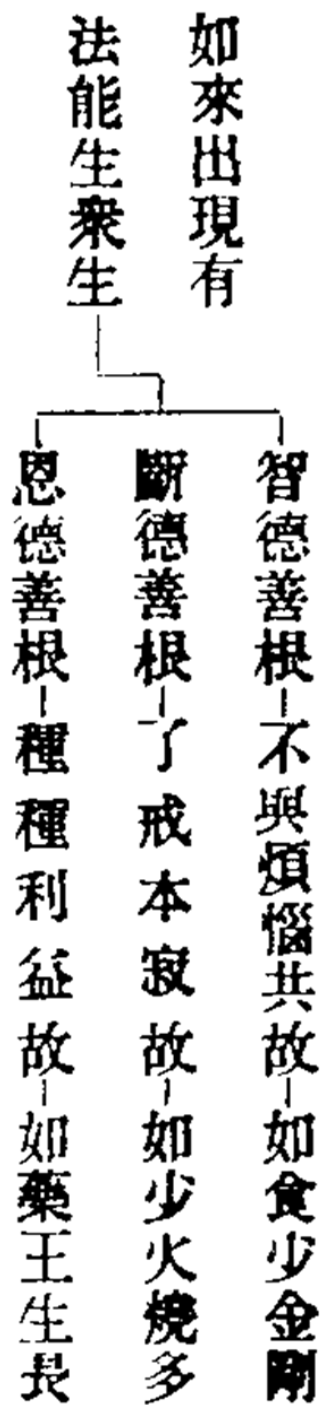 如來出現有
法能生衆生
智德善根
不與煩惱共故
如食少金剛
斷德善根
了戒本寂故
如少火燒多
恩德善根
種種利益故
如藥王生長